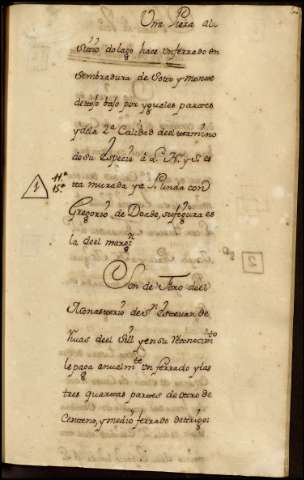 Otra Pieza al
sitio do lago hace un ferrado en
sembradura de Soto y monte
de tojo bajo por yguales partes
y de la 2ª Calidad de el termino
de su Especie á L. N. y S. es-
ta murada y a P. linda con
Gregorio de Dorbe su figura es
la de el margn
Son de Foro de el
Monasterio de Sn Estevan de
Rivas de el Sill y en su reconocimto
le paga anualmte un ferrado y las
tres quartas partes de otro de
Centeno, y medio ferrado de trigo:
1
11ª
15ª
2